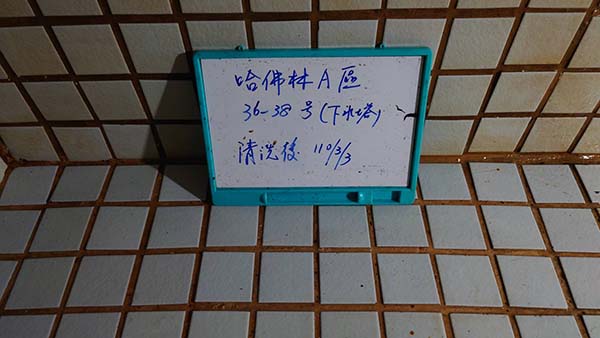 哈佛林A區
36-38号(下水塔)
清洗後 110/3/3